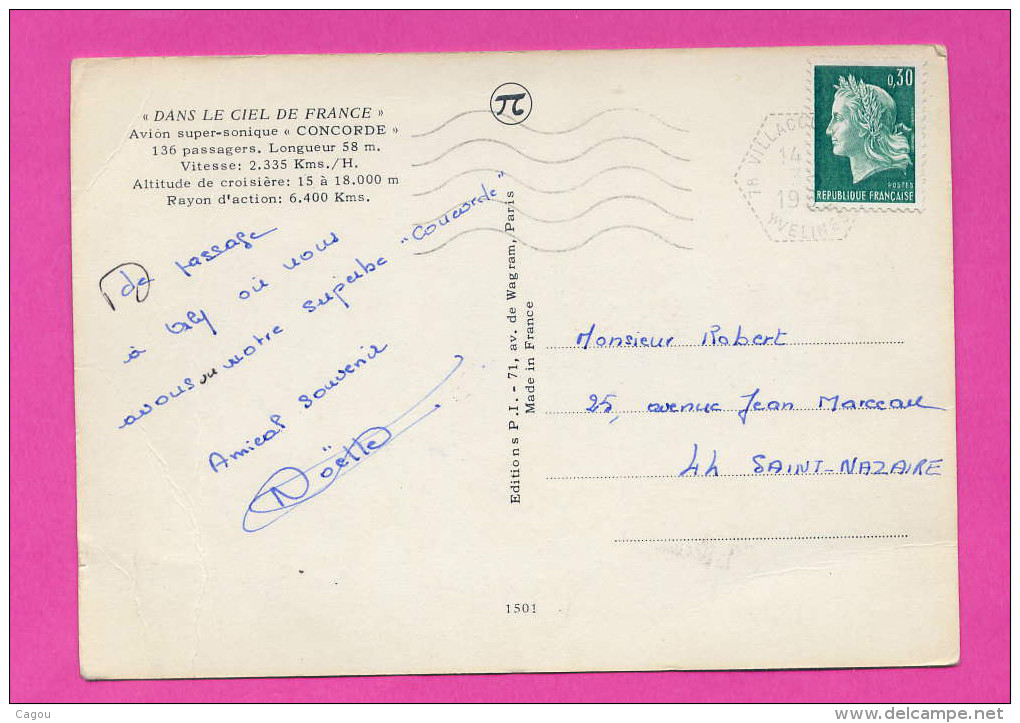 « DANS LE CIEL DE FRANCE »
Avion super-sonique « CONCORDE »
136 passagers. Longueur 58 m.
Vitesse: 2.335 Kms./H.
Altitude de croisière: 15 à 18.000 m
Rayon d'action: 6.400 Kms.
π
0,30
POSTES
REPUBLIQUE FRANÇAISE
78 VILLACO
14
19
YVELINES
de passage
à où nous
avons vu notre superbe "Concorde"
Amical souvenir
Noëlle
Editions P.I. - 71, av. de Wagram, Paris
Made in France
Monsieur Robert
25, avenue Jean Marceau
44 SAINT-NAZAIRE
1501
Cagou
www.delcampe.net